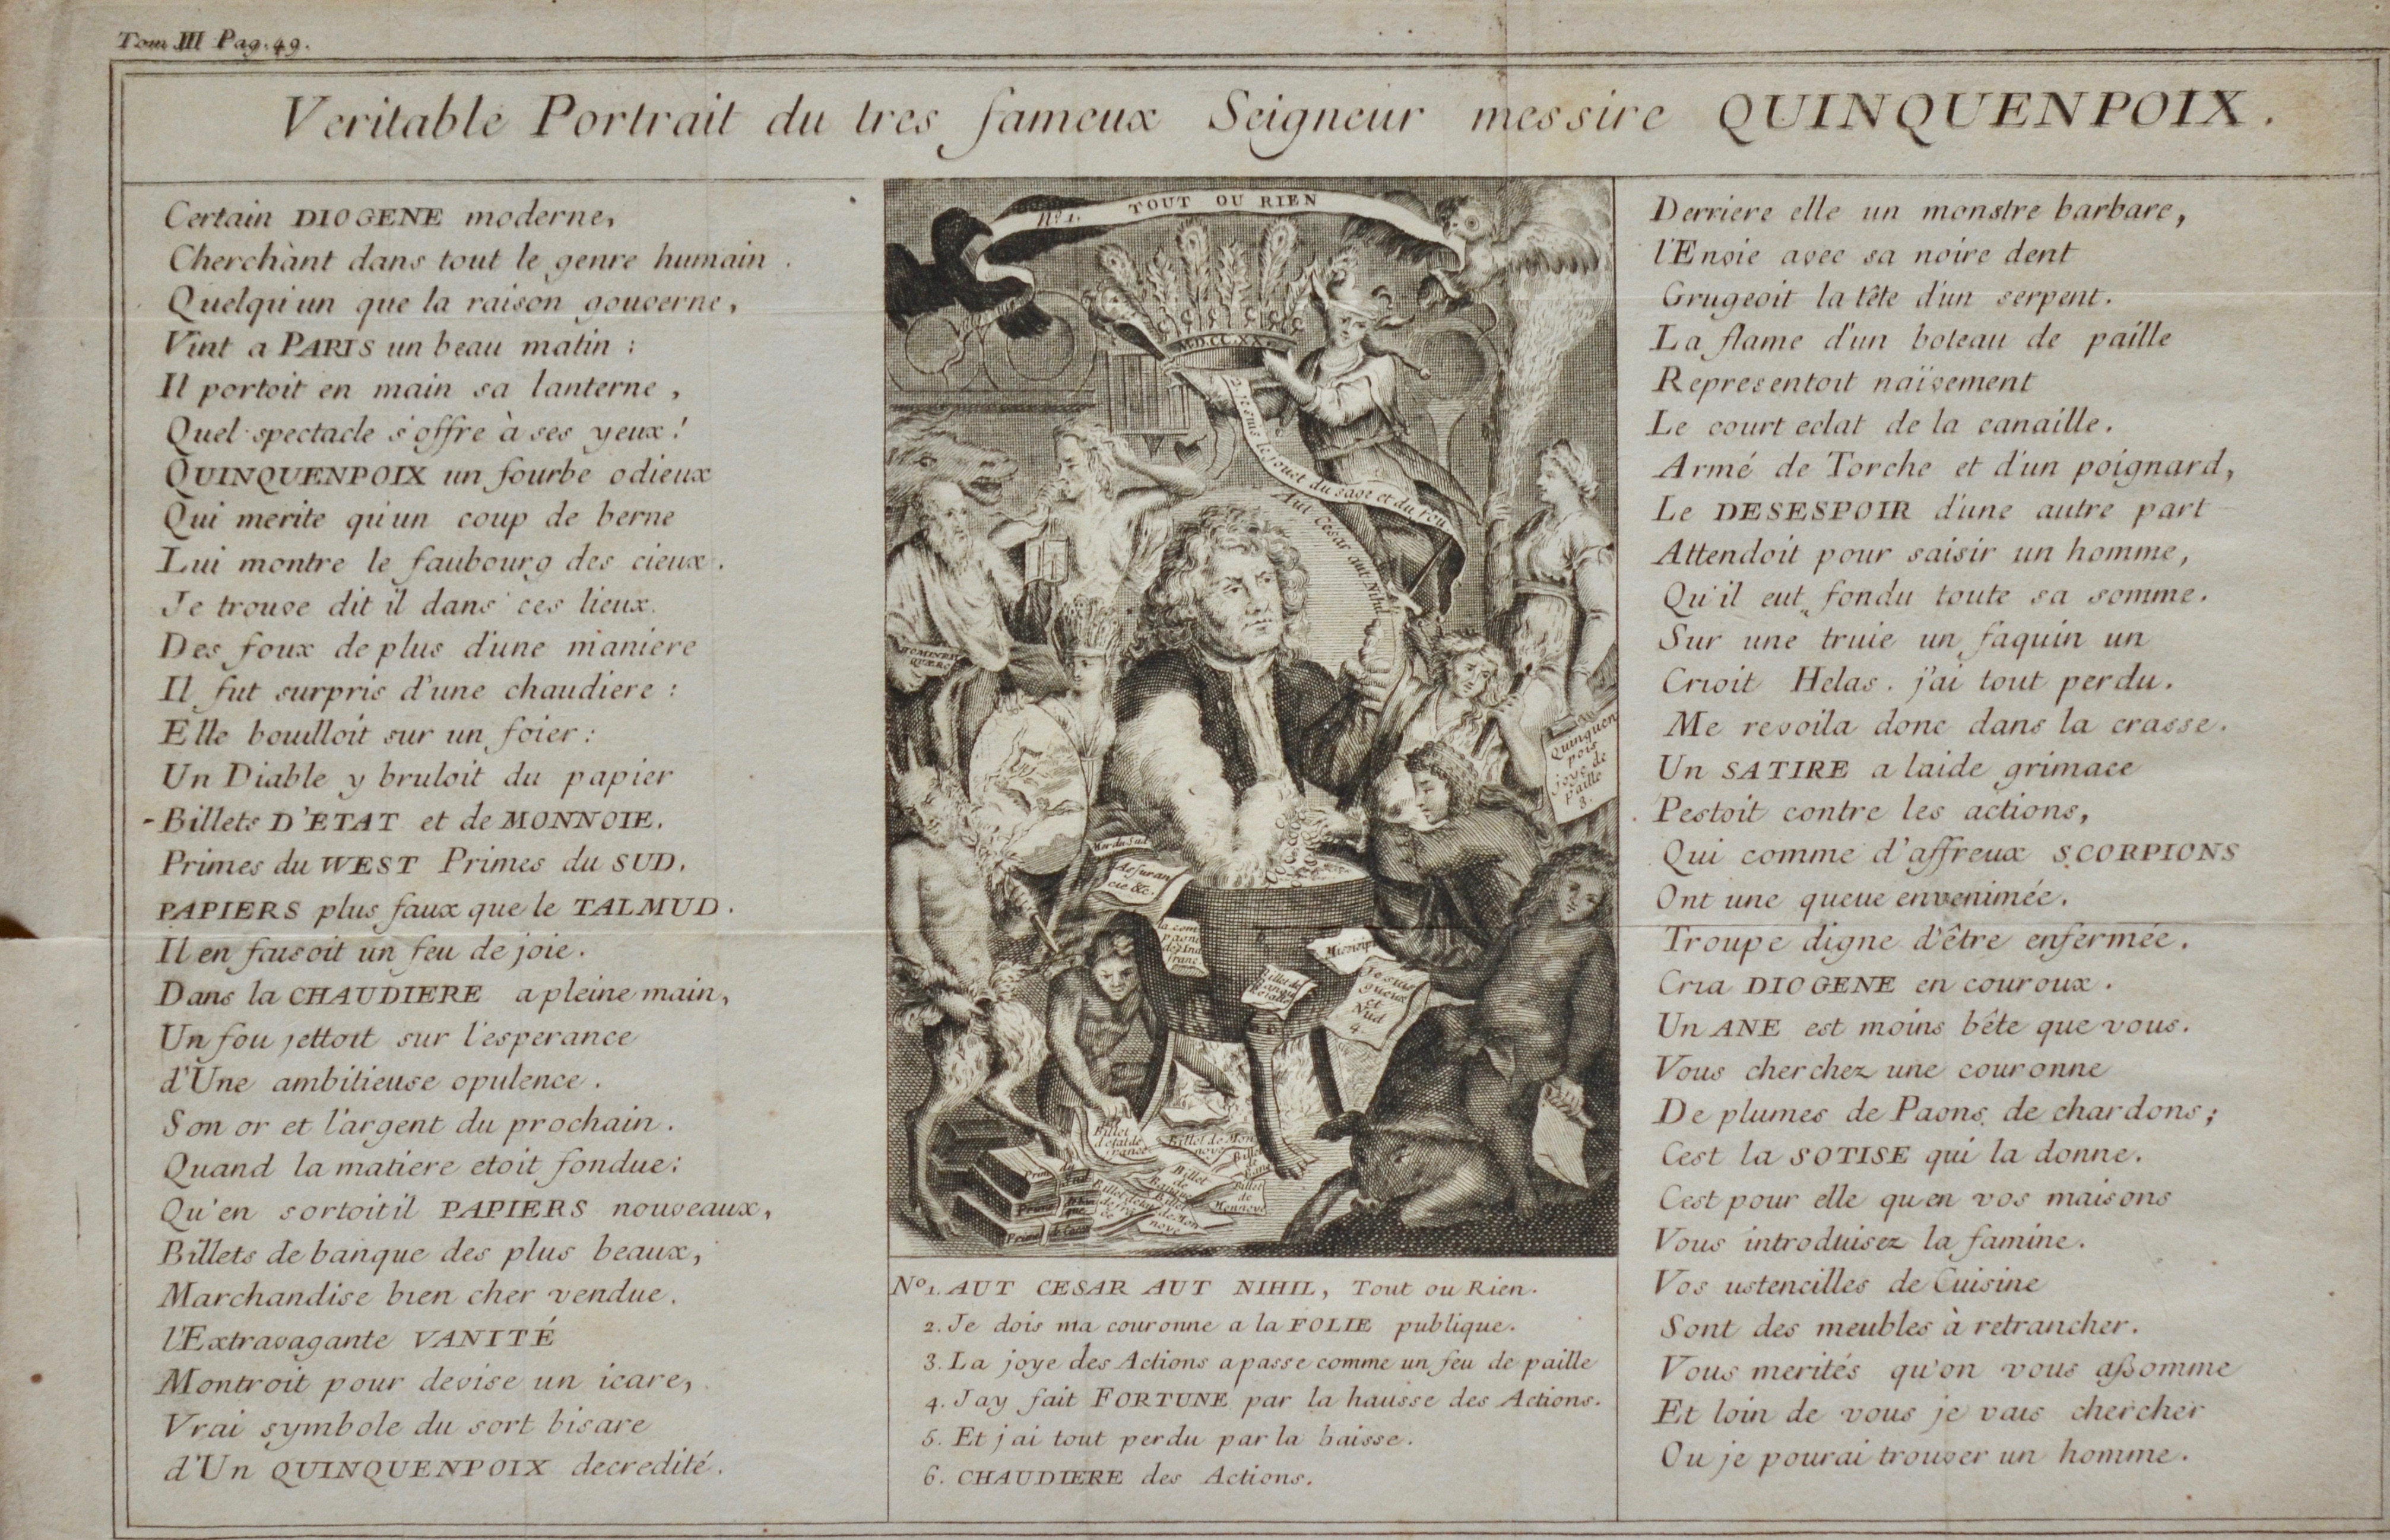 Tom III Pag. 49.
Veritable Portrait du tres fameux Seigneur messire QUINQUENPOIX.
Certain DIOGENE moderne,
Cherchant dans tout le genre humain.
Quelqu'un que la raison gouverne,
Vint a PARIS un beau matin :
Il portoit en main sa lanterne,
Quel spectacle s'offre à ses yeux !
QUINQUENPOIX un fourbe odieux
Qui merite qu'un coup de berne
Lui montre le faubourg des cieux.
Je trouve dit il dans ces lieux.
Des foux de plus d'une maniere
Il fut surpris d'une chaudiere :
Elle bouilloit sur un foier :
Un Diable y bruloit du papier
-Billets D'ETAT et de MONNOIE.
Primes du WEST Primes du SUD.
PAPIERS plus faux que le TALMUD.
Il en faisoit un feu de joie.
Dans la CHAUDIERE a pleine main,
Un fou jettoit sur l'esperance
d'Une ambitieuse opulence.
Son or et l'argent du prochain.
Quand la matiere etoit fondue :
Qu'en sortoit il PAPIERS nouveaux,
Billets de banque des plus beaux,
Marchandise bien cher vendue.
l'Extravagante VANITÉ
Montroit pour devise un icare,
Vrai symbole du sort bisare
d'Un QUINQUENPOIX decredité.
No 1. TOUT OU RIEN
M.D.CC.XX
2. je suis le jouet du sage et du fou
Aut Cesar aut Nihil
HOMINEM
QUÆRO
Quinquen
pois
joye de
paille
3.
Mer du Sud
Assuran
cie &c.
la com
Mississipi
Je suis
gueux
et
Nud
4.
Billet
d'etat de
france
Billet de Mon
noye
Billet
de
Billet
de
Monnoye
No 1. AUT CESAR AUT NIHIL, Tout ou Rien.
2. Je dois ma couronne a la FOLIE publique.
3. La joye des Actions a passe comme un feu de paille
4. Jay fait FORTUNE par la hausse des Actions.
5. Et j'ai tout perdu par la baisse.
6. CHAUDIERE des Actions.
Derriere elle un monstre barbare,
l'Envie avec sa noire dent
Grugeoit la tête d'un serpent.
La flame d'un boteau de paille
Representoit naïvement
Le court eclat de la canaille.
Armé de Torche et d'un poignard,
Le DESESPOIR d'une autre part
Attendoit pour saisir un homme,
Qu'il eut fondu toute sa somme.
Sur une truie un faquin un
Crioit Helas. j'ai tout perdu.
Me revoila donc dans la crasse.
Un SATIRE a laide grimace
Pestoit contre les actions,
Qui comme d'affreux SCORPIONS
Ont une queue envenimée.
Troupe digne d'être enfermée.
Cria DIOGENE en couroux.
Un ANE est moins bête que vous.
Vous cherchez une couronne
De plumes de Paons, de chardons ;
Cest la SOTISE qui la donne.
Cest pour elle qu'en vos maisons
Vous introduisez la famine.
Vos ustencilles de Cuisine
Sont des meubles à retrancher.
Vous merités qu'on vous aßomme
Et loin de vous je vais chercher
Ou je pourai trouver un homme.